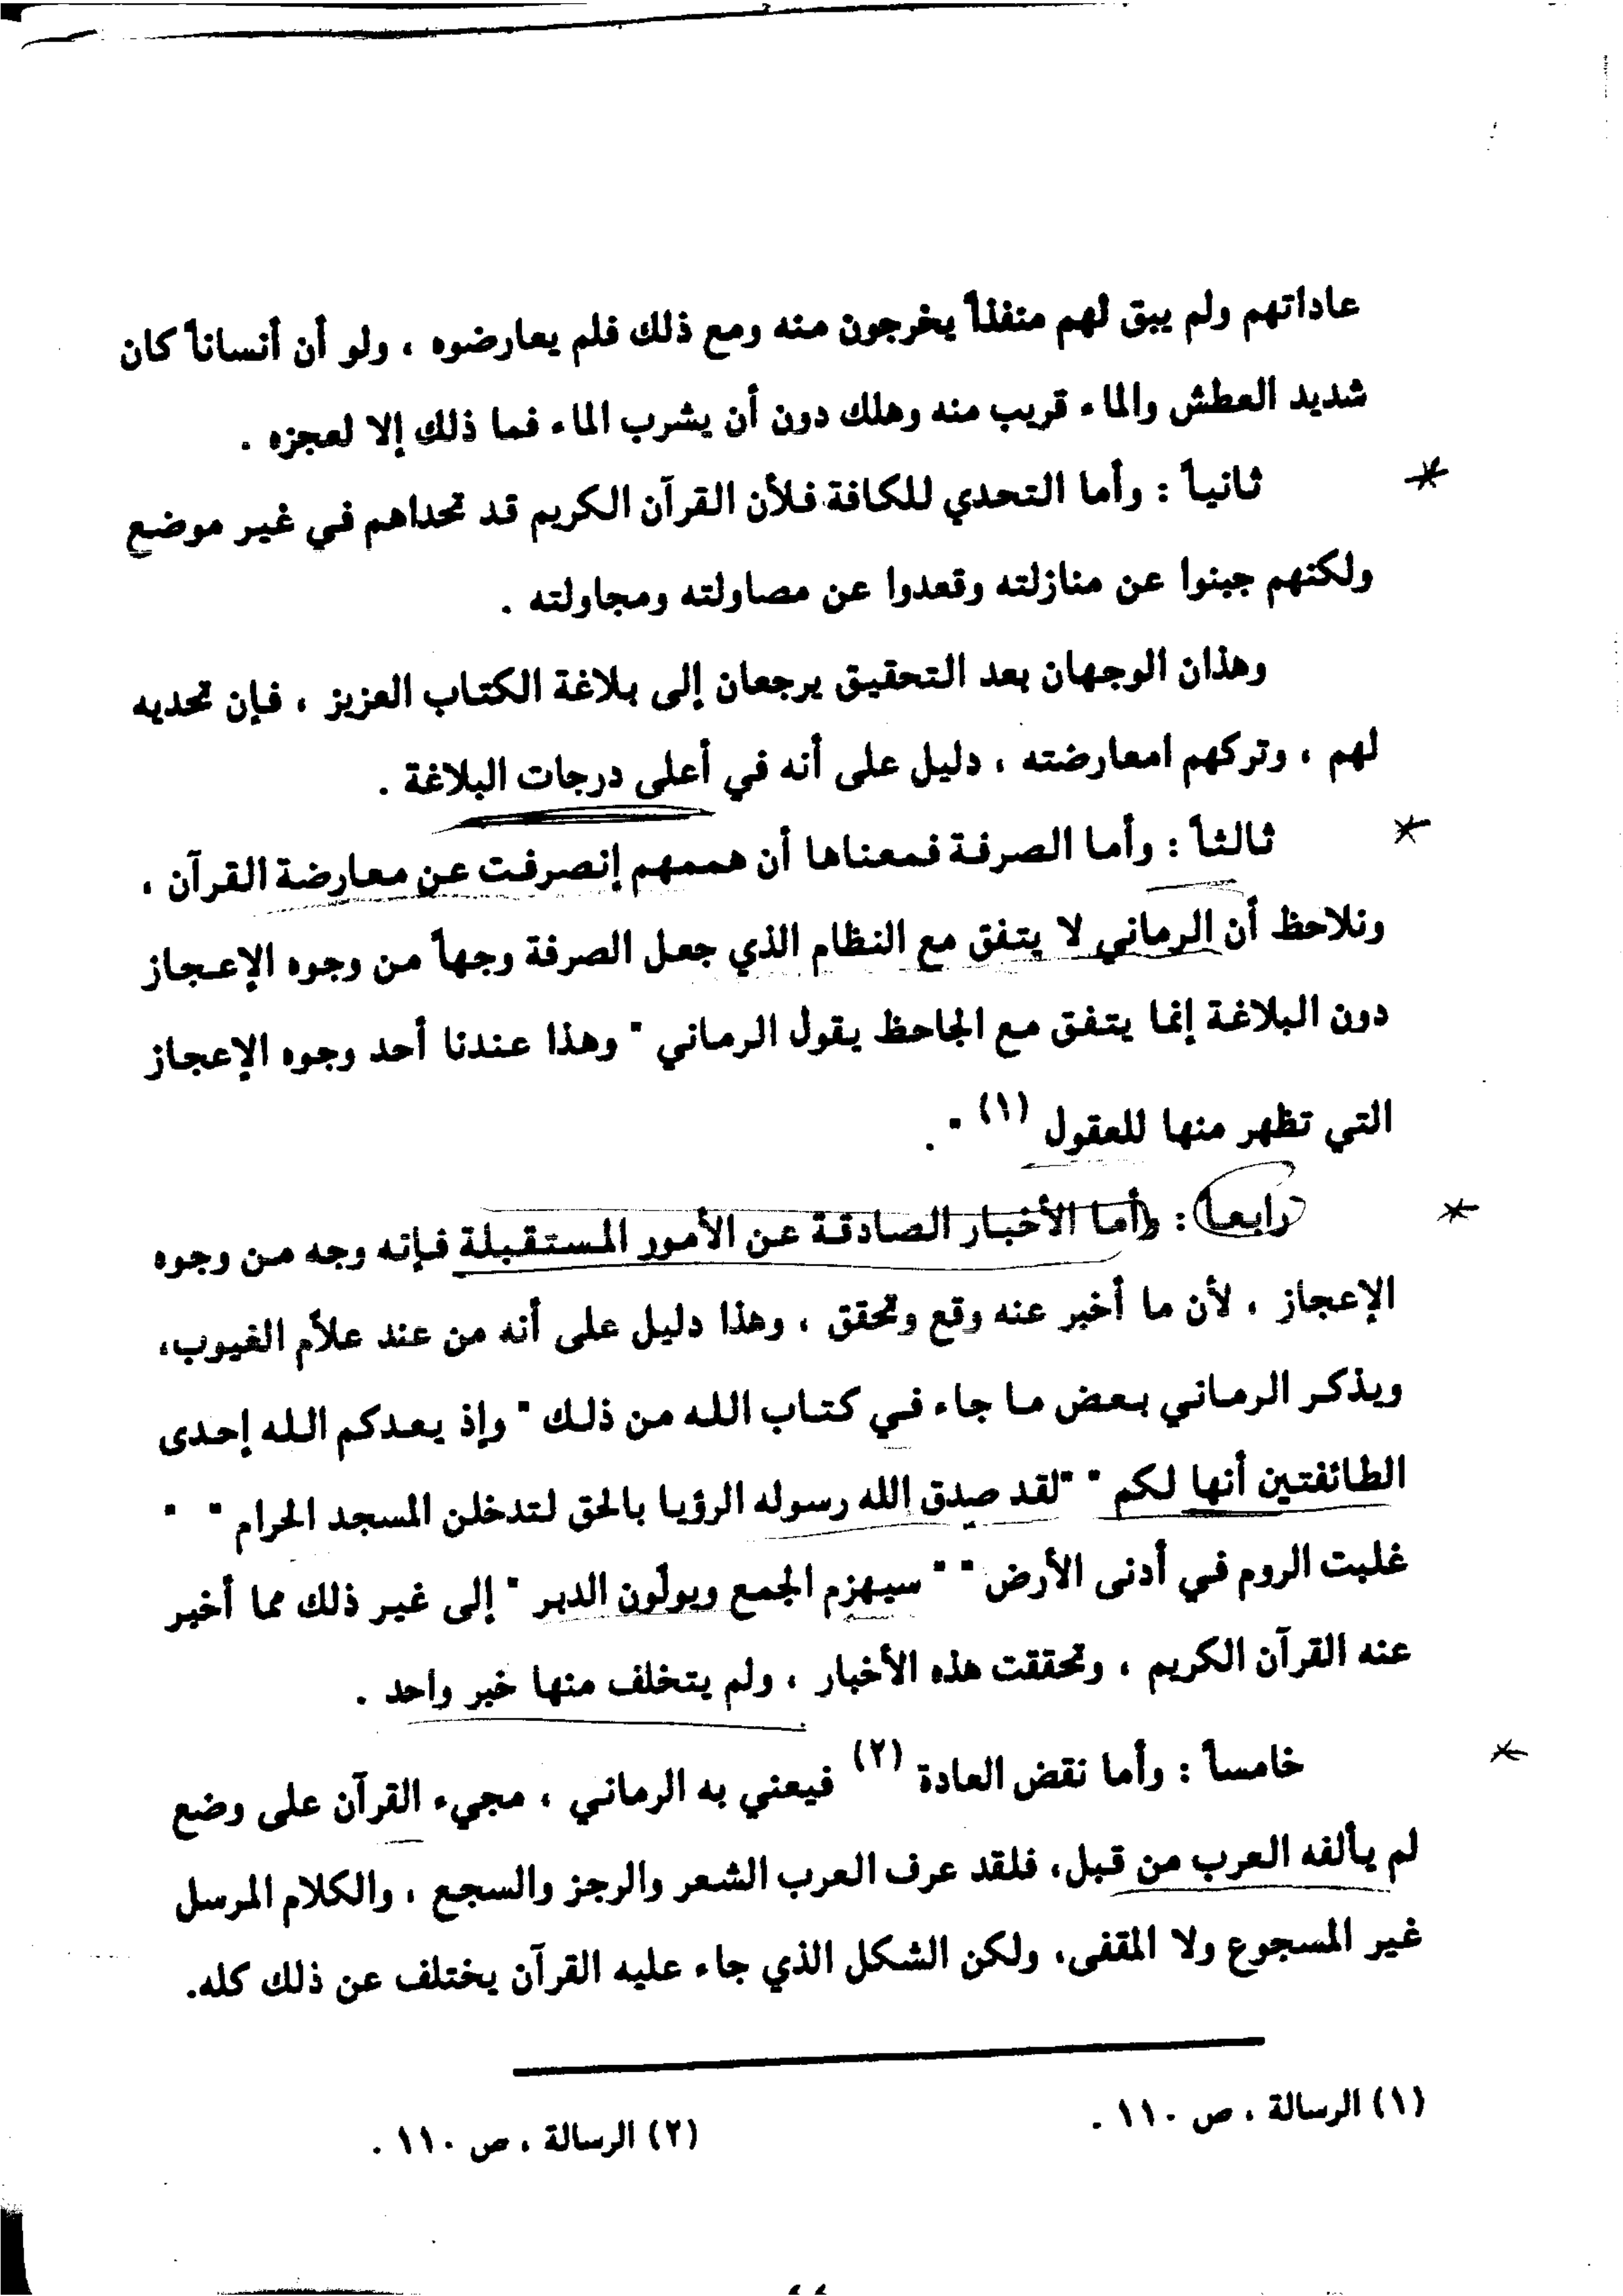 عاداتهم ولم يبق لهم منفذاً يخرجون منه ومع ذلك فلم يعارضوه ، ولو أن أنساناً كان
شديد العطش والماء قريب منه وهلك دون أن يشرب الماء فما ذلك إلا لعجزه .
ثانياً : وأما التحدي للكافة فلأن القرآن الكريم قد تحداهم في غير موضع
ولكنهم جبنوا عن منازلته وقعدوا عن مصاولته ومجاولته .
وهذان الوجهان بعد التحقيق يرجعان إلى بلاغة الكتاب العزيز ، فإن تحديه
لهم ، وتركهم امعارضته ، دليل على أنه في أعلى درجات البلاغة .
ثالثاً : وأما الصرفة فمعناها أن هممهم إنصرفت عن معارضة القرآن ،
ونلاحظ أن الرماني لا يتفق مع النظام الذي جعل الصرفة وجهاً من وجوه الإعجاز
دون البلاغة إنما يتفق مع الجاحظ يقول الرماني " وهذا عندنا أحد وجوه الإعجاز
التي تظهر منها للعقول (١) " .
رابعاً : وأما الأخبار الصادقة عن الأمور المستقبلة فإنه وجه من وجوه
الإعجاز ، لأن ما أخبر عنه وقع وتحقق ، وهذا دليل على أنه من عند علاّم الغيوب،
ويذكر الرماني بعض ما جاء في كتاب الله من ذلك " وإذ يعدكم الله إحدى
الطائفتين أنها لكم " "لقد صدق الله رسوله الرؤيا بالحق لتدخلن المسجد الحرام " "
غلبت الروم في أدنى الأرض " " سيهزم الجمع ويولّون الدبر " إلى غير ذلك مما أخبر
عنه القرآن الكريم ، وتحققت هذه الأخبار ، ولم يتخلف منها خبر واحد .
خامساً : وأما نقض العادة (٢) فيعني به الرماني ، مجيء القرآن على وضع
لم يألفه العرب من قبل، فلقد عرف العرب الشعر والرجز والسجع ، والكلام المرسل
غير المسجوع ولا المقفى، ولكن الشكل الذي جاء عليه القرآن يختلف عن ذلك كله.
(١) الرسالة ، ص ١١٠ .
(٢) الرسالة ، ص ١١٠ .